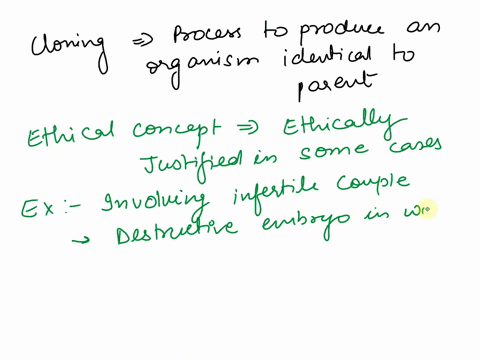 Cloning ⇒ Process to produce an
organism identical to
parent
Ethical concept ⇒ Ethically
Justified in some cases
Ex:- Involving infertile couple
→ Destructive embryo in